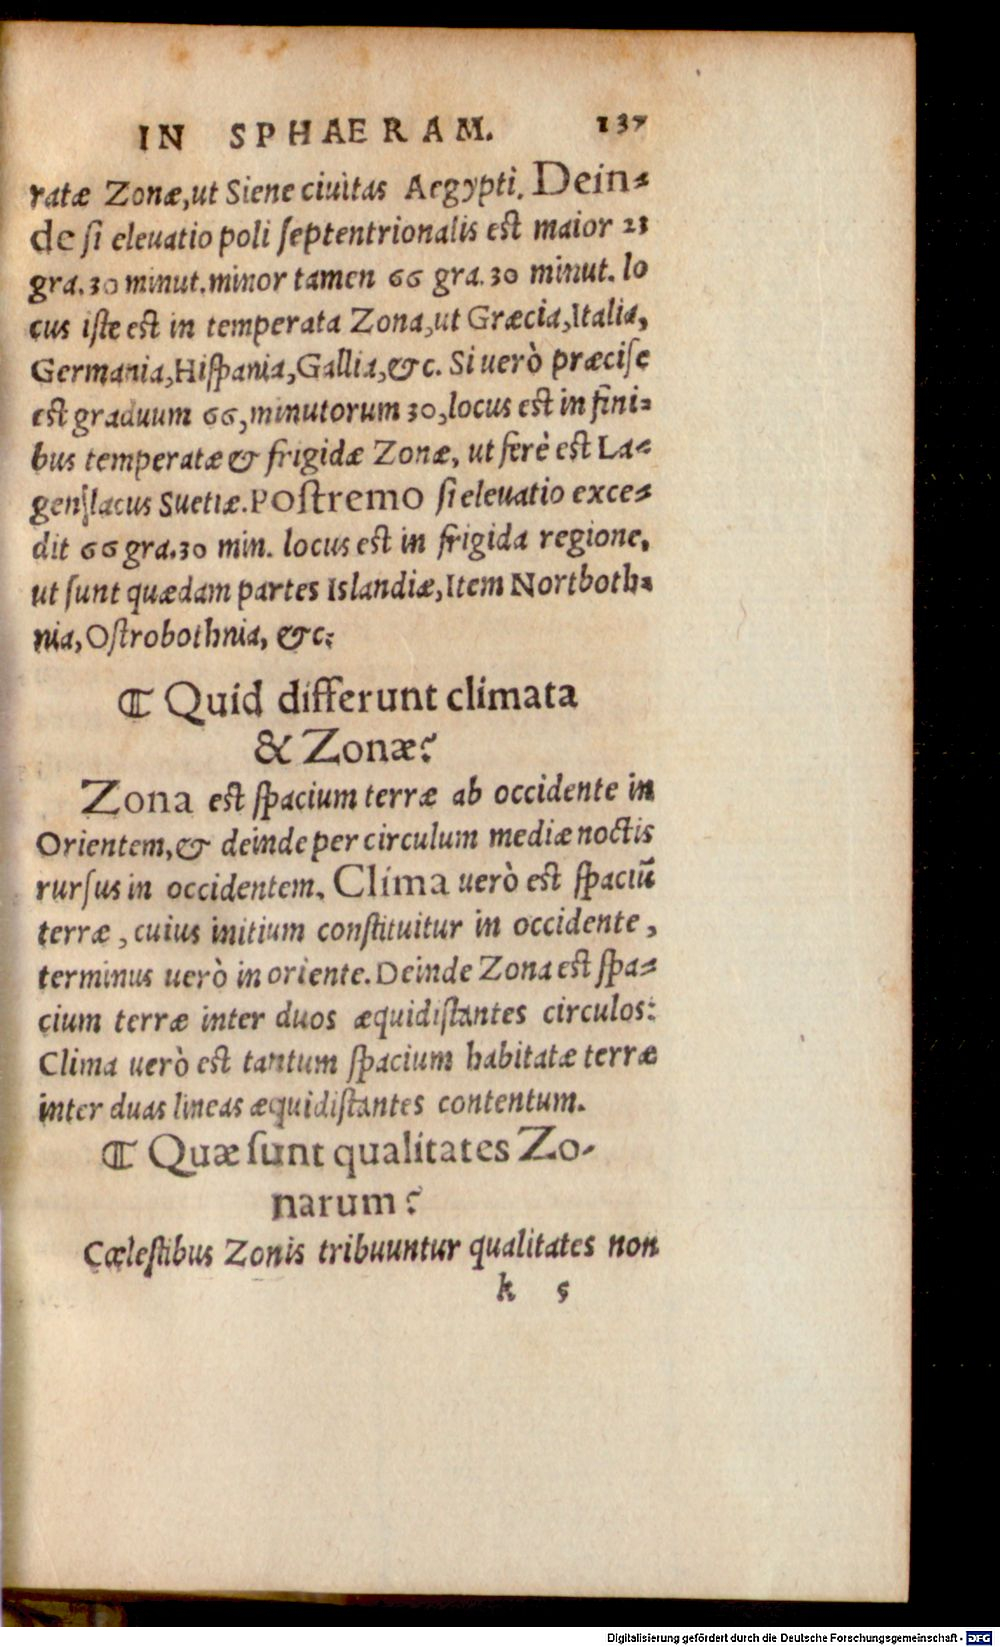 IN SPHAERAM. 137
ratæ Zonæ, ut Siene ciuitas Aegypti. Dein-
de ſi eleuatio poli ſeptentrionalis est maior 23
gra. 30 minut. minor tamen 66 gra. 30 minut. lo
cus iste est in temperata Zona, ut Græcia, Italia,
Germania, Hiſpania, Gallia, &c. Si uerò præciſe
est graduum 66, minutorum 30, locus est in fini-
bus temperatæ & frigidæ Zonæ, ut ferè est La-
genſlacus Suetiæ. Poſtremo ſi eleuatio exce-
dit 66 gra. 30 min. locus est in frigida regione,
ut ſunt quædam partes Islandiæ, Item Nortboth-
nia, Oſtrobothnia, &c.
¶ Quid differunt climata
& Zonæ?
Zona est ſpacium terræ ab occidente in
Orientem, & deinde per circulum mediæ noctis
rurſus in occidentem. Clima uerò est ſpaciũ
terræ, cuius initium conſtituitur in occidente,
terminus uerò in oriente. Deinde Zona est ſpa-
cium terræ inter duos æquidiſtantes circulos:
Clima uerò est tantum ſpacium habitatæ terræ
inter duas lineas æquidiſtantes contentum.
¶ Quæ ſunt qualitates Zo-
narum?
Cœleſtibus Zonis tribuuntur qualitates non
k 5
Digitalisierung gefördert durch die Deutsche Forschungsgemeinschaft - DFG